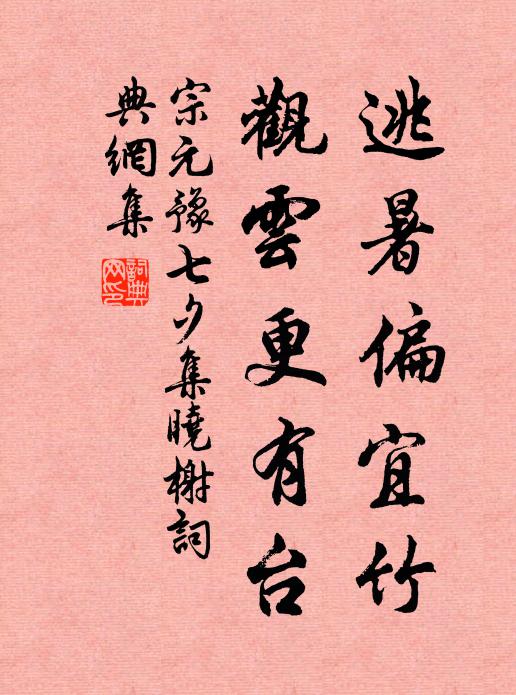 逃暑偏宜竹
觀雲更有台
宗元豫七夕集曉榭詞
典網集
詞典網印